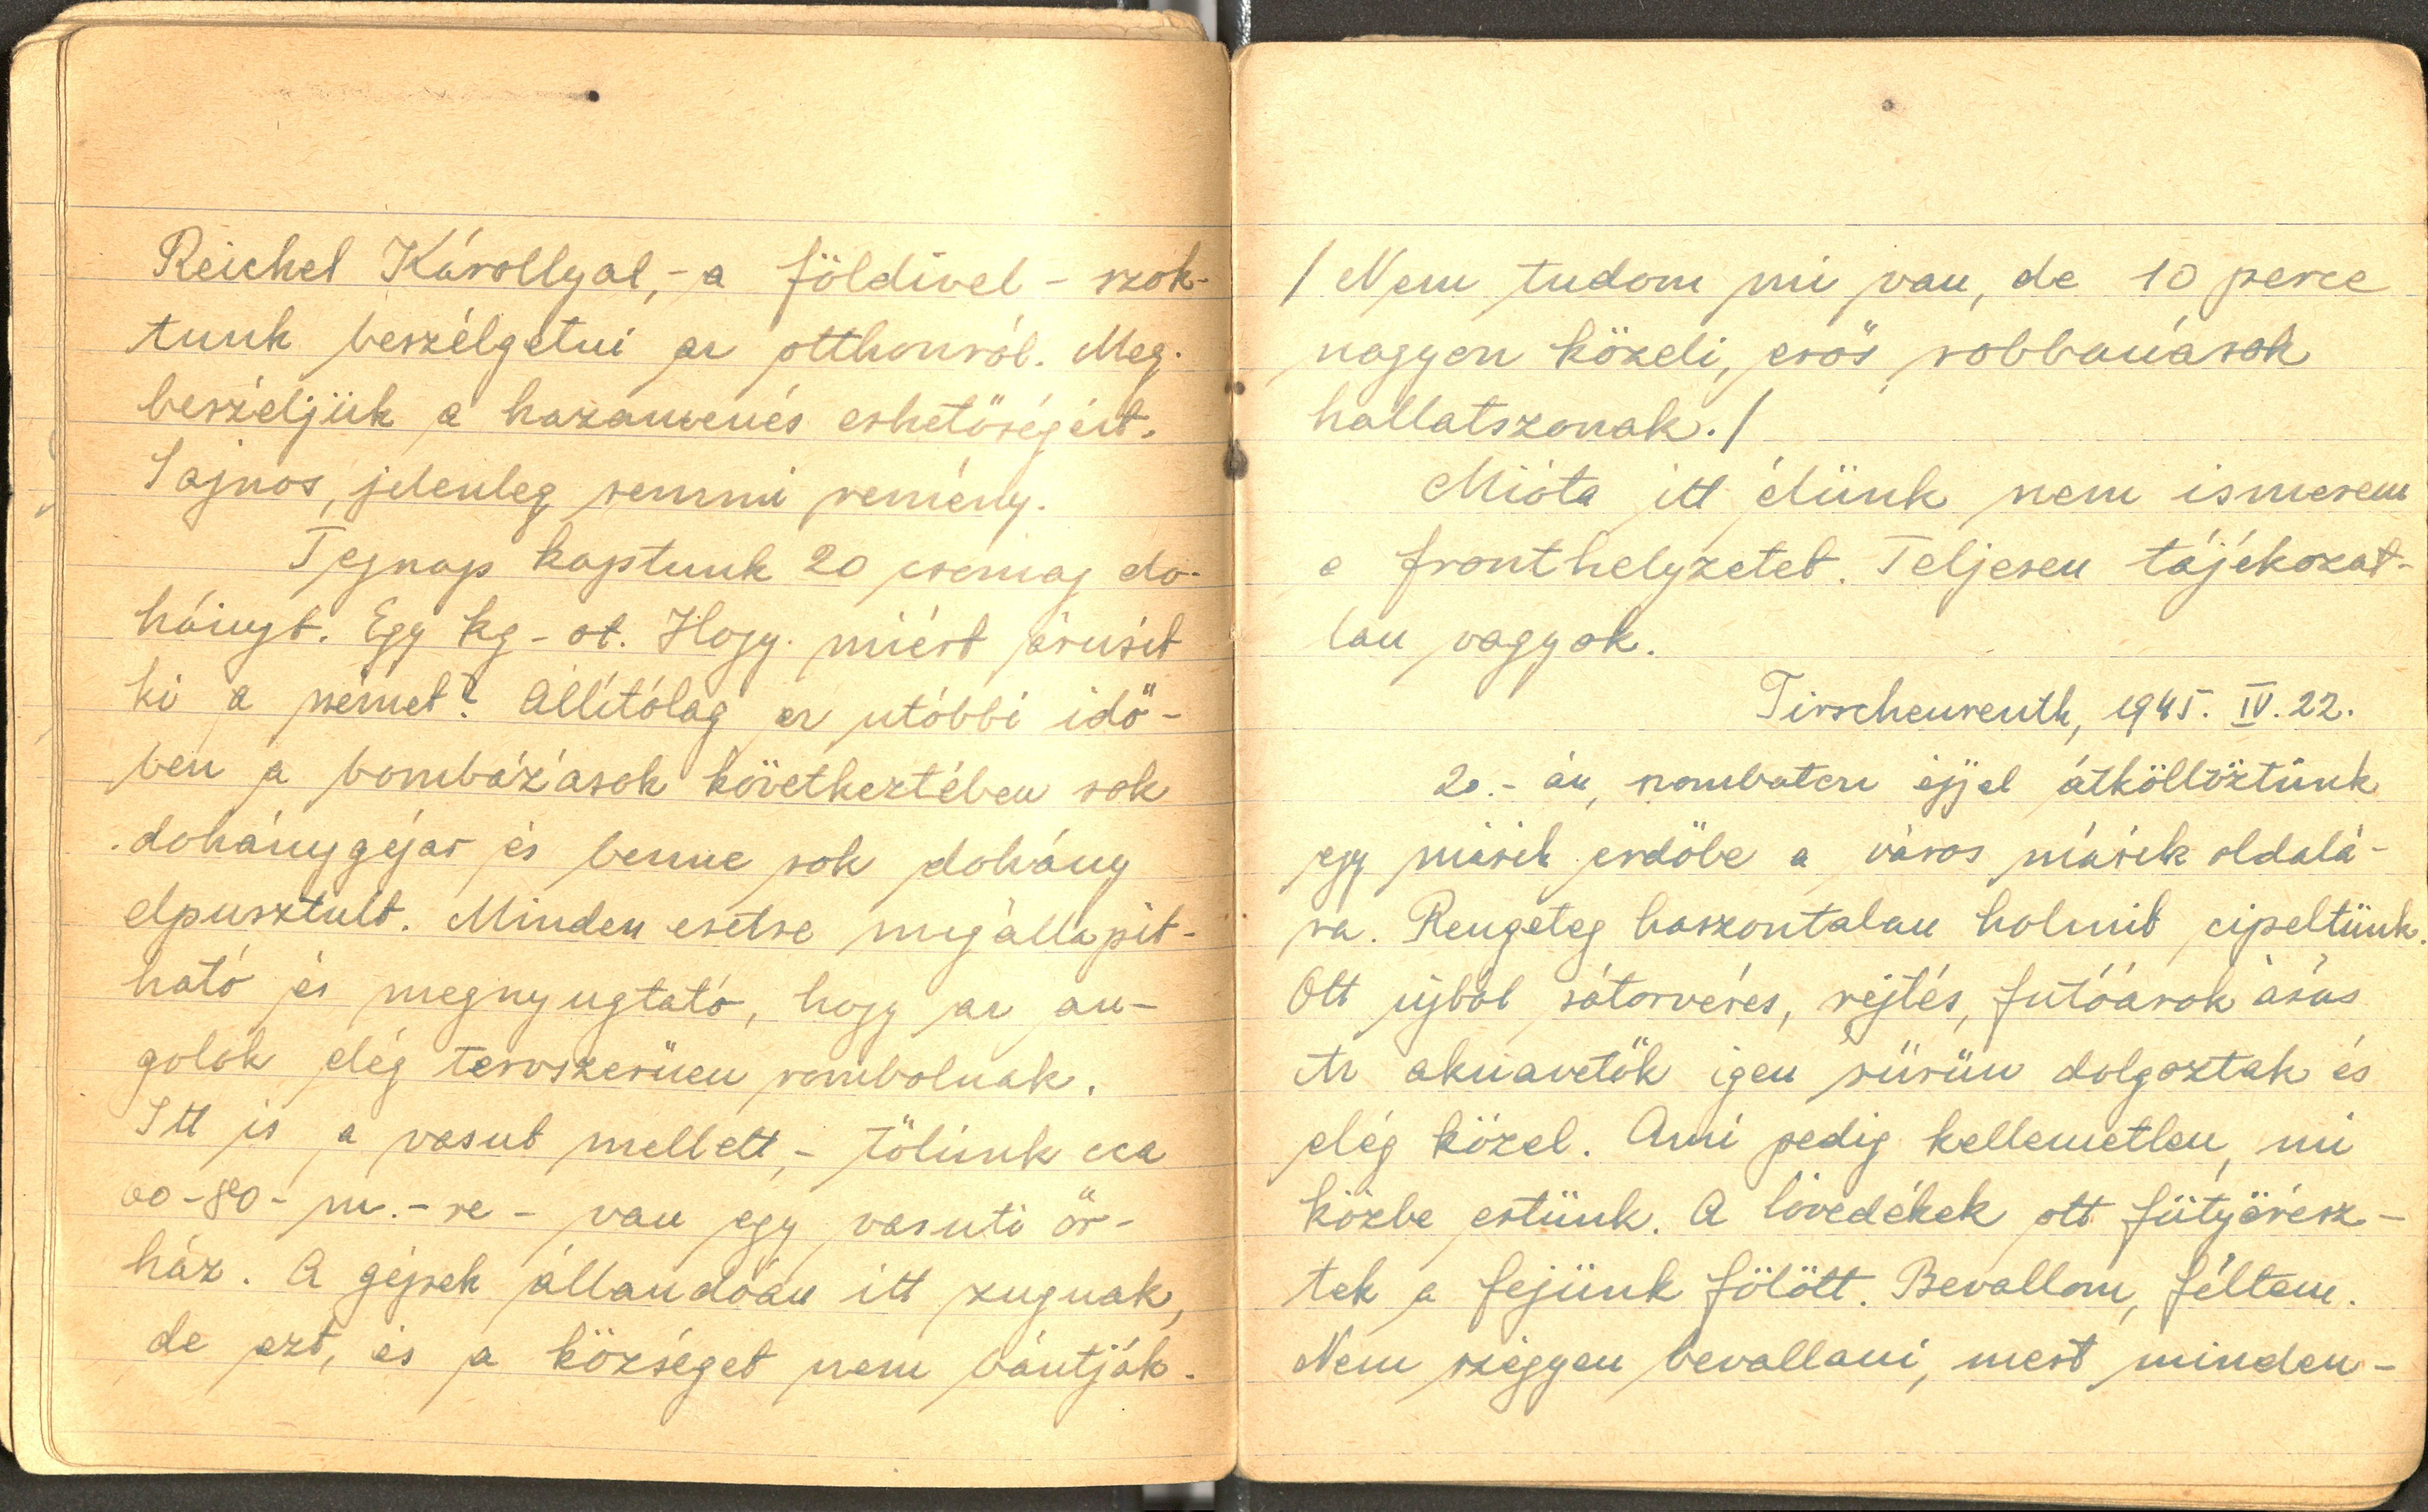 Reichel Károllyal, - a földivel - szok-
tunk beszélgetni az otthonról. Meg-
beszéljük a hazamenés eshetőségeit.
Sajnos, jelenleg semmi remény.
Tegnap kaptunk 20 csomag do-
hányt. Egy kg-ot. Hogy miért árusit
ki a német? Állítólag az utóbbi idő-
ben a bombázások következtében sok
dohánygyár és benne sok dohány
elpusztult. Minden esetre megállapit-
ható és megnyugtató, hogy az an-
golok elég tervszerüen rombolnak.
Itt is a vasut mellett, - tölünk cca
60-80- m.-re - van egy vasuti őr-
ház. A gépek állandóan itt zugnak,
de ezt, és a községet nem bántják.
/ Nem tudom mi van, de 10 perce
nagyon közeli, erős robbanások
hallatszonak. /
Mióta itt élünk nem ismerem
a fronthelyzetet. Teljesen tájékozat-
lan vagyok.
Tirschenreuth, 1945. IV. 22.
20.-án, szombaton éjjel átköltöztünk
egy másik erdőbe a város másik oldalá-
ra. Rengeteg haszontalan holmit cipeltünk.
Ott ujból sátorverés, rejtés, futóárok ásás
Az aknavetők igen sürün dolgoztak és
elég közel. Ami pedig kellemetlen, mi
közbe estünk. A lövedékek ott fütyörész-
tek a fejünk fölött. Bevallom, féltem.
Nem szégyen bevallani, mert minden-